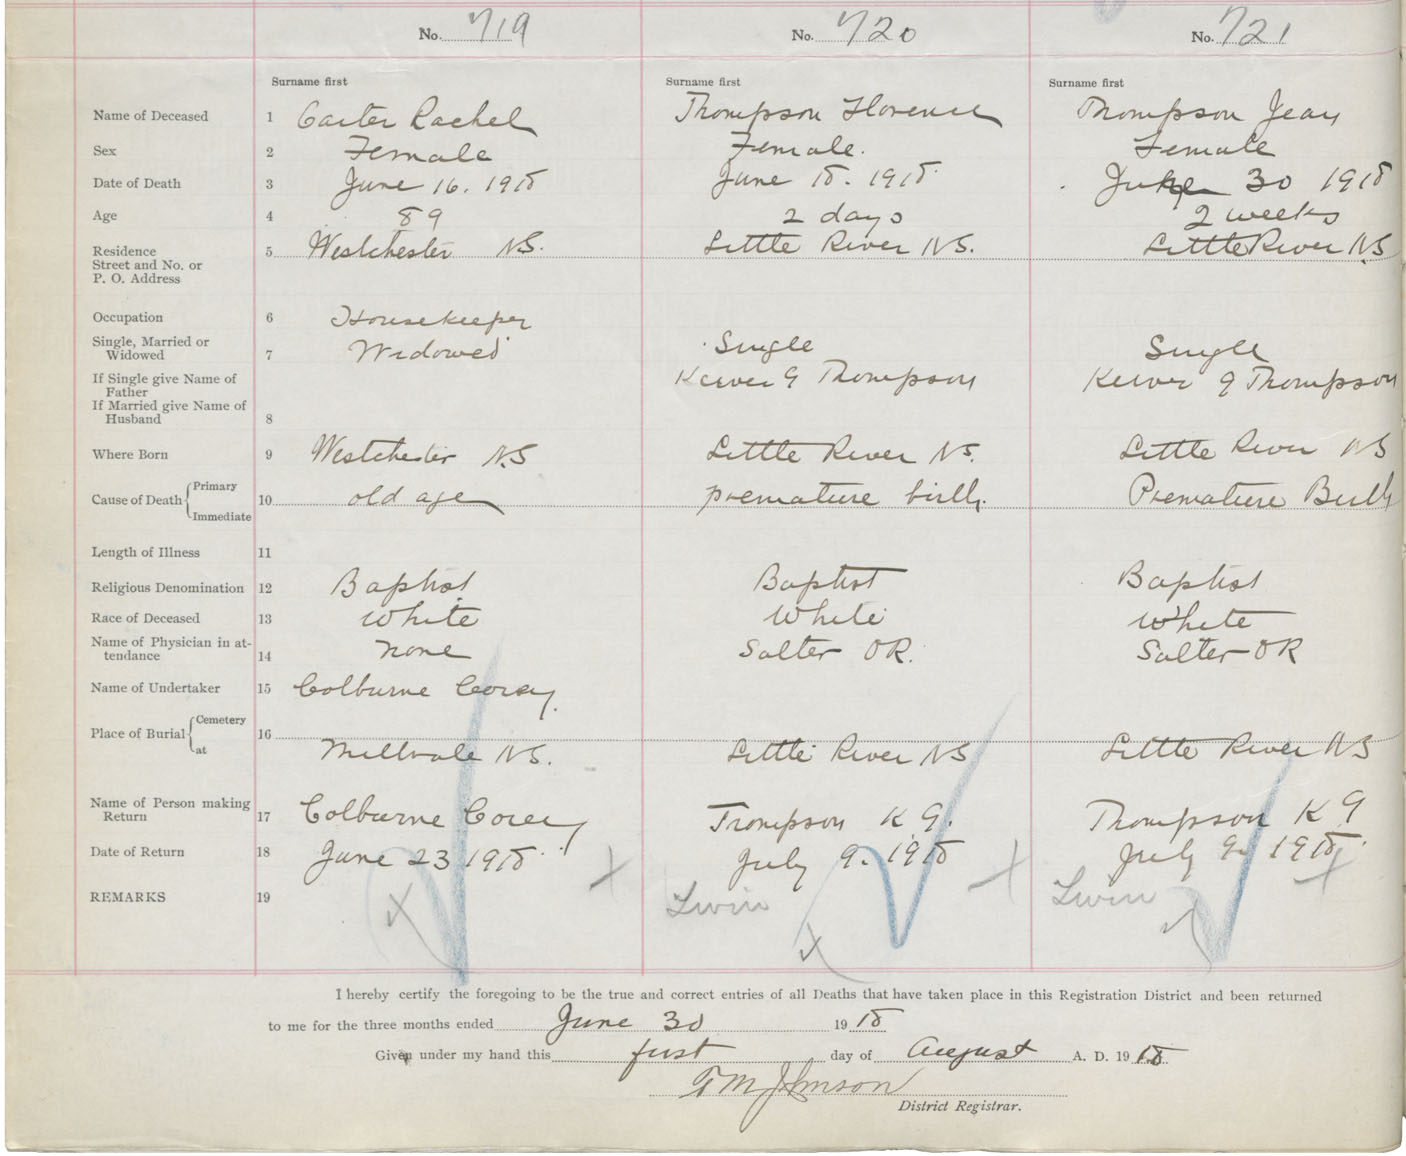 No. 719 No. 720 No. 721
Surname first Surname first Surname first
Name of Deceased 1 Carter Rachel Thompson Florence Thompson Jean
Sex 2 Female Female. Female
Date of Death 3 June 16. 1918 June 18. 1918 June 30 1918
Age 4 89 2 days 2 weeks
Residence
Street and No. or
P. O. Address 5 Westchester NS. Little River NS. Little River NS
Occupation 6 Housekeeper
Single, Married or
Widowed 7 Widowed Single Single
If Single give Name of
Father Thompson Thompson
If Married give Name of
Husband 8
Where Born 9 Westchester NS Little River NS. Little River NS
Cause of Death { Primary
10 old age premature birth. Premature Birth
Immediate
Length of Illness 11
Religious Denomination 12 Baptist Baptist Baptist
Race of Deceased 13 White White White
Name of Physician in at-
tendance 14 none Salter DR. Salter DR
Name of Undertaker 15 Colburne Corey
Place of Burial { Cemetery
16
at Millvale NS. Little River NS Little River NS
Name of Person making
Return 17 Colburne Corey Trompson K G. Thompson K G
Date of Return 18 June 23 1918 July 9. 1918 July 9. 1918
REMARKS 19 Twin Twin
I hereby certify the foregoing to be the true and correct entries of all Deaths that have taken place in this Registration District and been returned
to me for the three months ended June 30 19 18
Given under my hand this first day of August A. D. 19 18
T M Johnson
District Registrar.